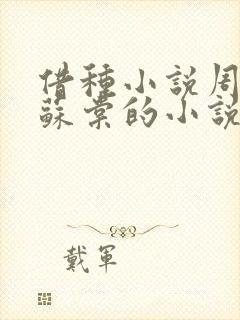 借种小说周
蘇棠的小說
戴軍